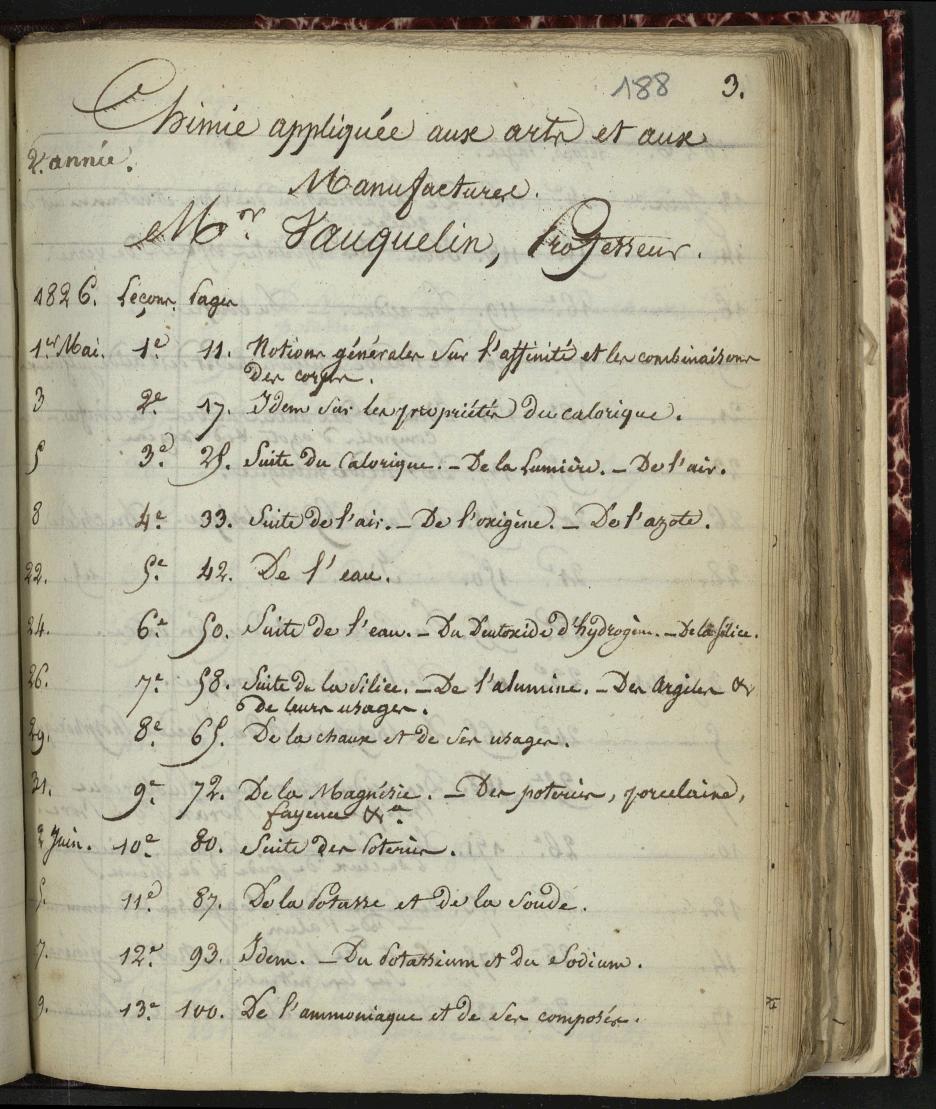 188 3.
Chimie appliquée aux arts et aux
2e année.
Manufactures.
Mr. Vauquelin, Professeur.
1826. Leçons. Pages
1er Mai. 1e 11. Notions générales sur l'affinité et les combinaisons
des corps.
3 2e 17. Idem sur les propriétés du calorique.
5 3e 25. Suite du Calorique. – De la Lumière. – De l'air.
8 4e 33. Suite de l'air. – De l'oxigène. – De l'azote.
22. 5e 42. De l'eau.
24. 6e 50. Suite de l'eau. – Du Deutoxide d'hydrogène. – De la Silice.
26. 7e 58. Suite de la Silice. – De l'alumine. – Des Argiles &
de leurs usages.
29. 8e 65. De la chaux et de ses usages.
31. 9e 72. De la Magnésie. – Des poteries, porcelaine,
fayence &a
2 Juin. 10e 80. Suite des Poteries.
5. 11e 87. De la Potasse et de la Soude.
7. 12e 93. Idem. – Du Potassium et du Sodium.
9. 13e 100. De l'ammoniaque et de ses composés.